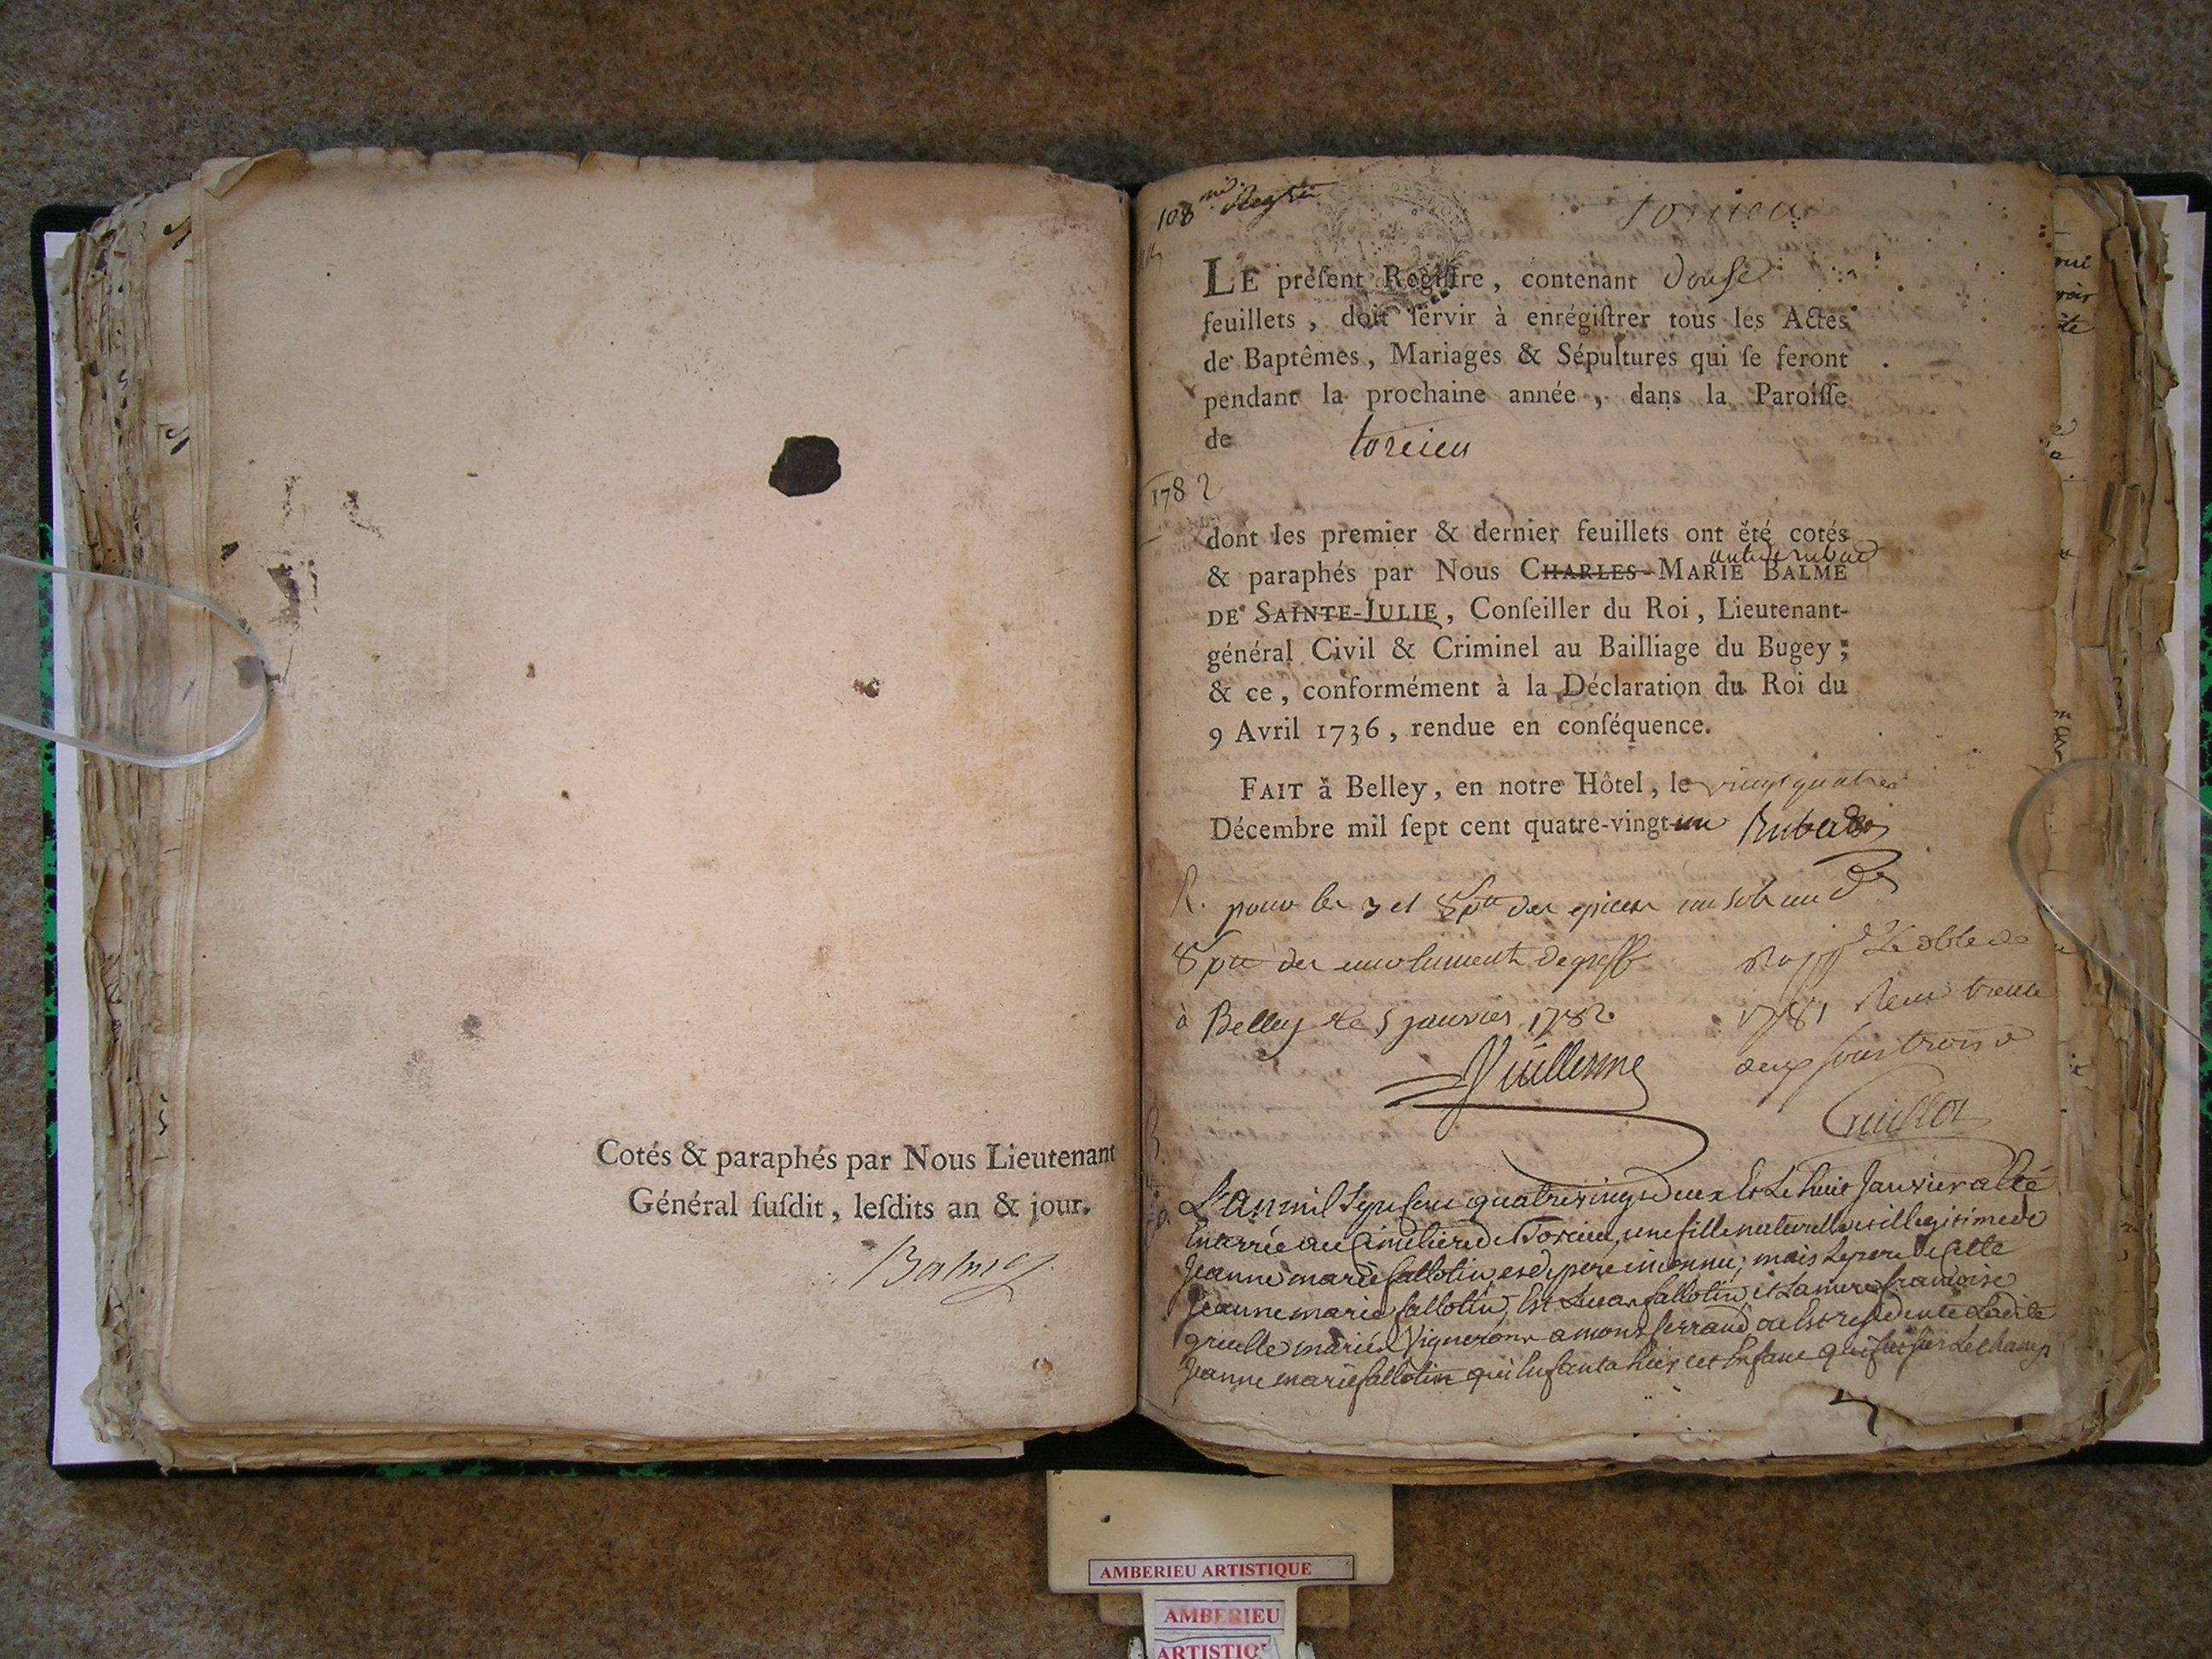 Cotés & paraphés par Nous Lieutenant
Général ſuſdit, leſdits an & jour.
Balme
108
Torcieu
LE préſent Regiſtre, contenant douse
feuillets, doit ſervir à enrégiſtrer tous les Actes
de Baptêmes, Mariages & Sépultures qui ſe feront
pendant la prochaine année, dans la Paroiſſe
de torcieu
1782
dont les premier & dernier feuillets ont été cotés
& paraphés par Nous CHARLES-MARIE BALME
DE SAINTE-JULIE, Conſeiller du Roi, Lieutenant-
général Civil & Criminel au Bailliage du Bugey;
& ce, conformément à la Déclaration du Roi du
9 Avril 1736, rendue en conſéquence.
FAIT à Belley, en notre Hôtel, le vingt quatre
Décembre mil ſept cent quatre-vingt-un Rubad
R. pour les 3 et 8 des epices un sols un d
8 des emoluments de greffe
à Belley le 5 janvier 1782
Vuillerme
1781 Reçu trente
deux sous trois d
Guillot
L'an mil sept cent quatrevingt deux et le huit Janvier a été
Enterrée au Cimetiere de Torcieu, une fille naturelle et illegitime de
Jeanne marie fallotin et de pere inconnu; mais le pere de cette
Jeanne marie fallotin, est Lucas fallotin et la mere francoise
grielle mariés Vignerons a montferrand, ou est residente ladite
Jeanne marie fallotin qui enfanta hier cet Enfant qui fut sur le champ
AMBERIEU ARTISTIQUE
AMBERIEU
ARTISTIQ